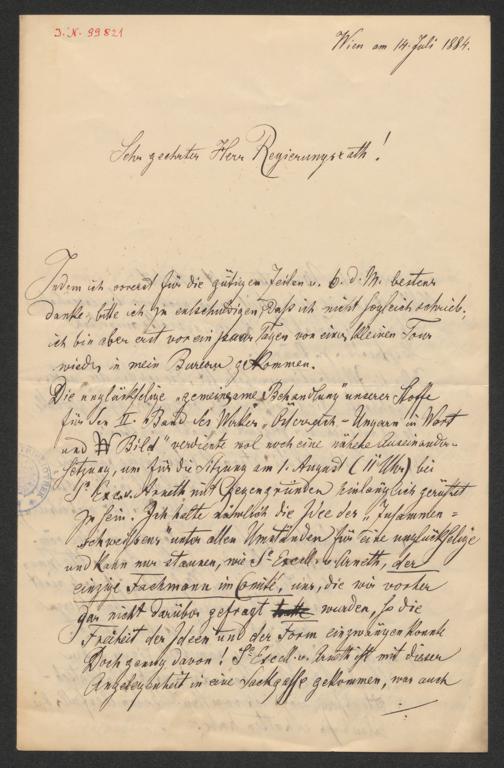 J. N. 99821
Wien am 14. Juli 1884.
Sehr geehrter Herr Regierungsrath!
Indem ich vorerst für die gütigen Zeilen v. 6. d. M. bestens
danke, bitte ich zu entschuldigen, daß ich nicht sogleich schrieb,
ich bin aber erst vor ein paar Tagen von einer kleinen Tour
wieder in mein Bureau gekommen.
Die unglückselige „gemeinsame Behandlung" unserer Stoffe
für den II. Band des Werkes „Österreich-Ungarn in Wort
und Bild" verdiente wol noch eine nähere Auseinander-
setzung, um für die Sitzung am 1. August (11 Uhr) bei
Sr Excell. Arneth mit Gegengründen hinlänglich gerüstet
zu sein. Ich halte nämlich die Idee des „Zusammen=
schweißens" unter allen Umständen für eine unglückselige
und kann nur staunen, wie Sr Excell. v. Arneth, der
einzige Fachmann im Comité, uns, die wir vorher
gar nicht darüber gefragt wurden, so die
Freiheit der Ideen und der Form einzwängen konnte
Doch genug davon! Sr Excell. v. Arneth ist mit dieser
Angelegenheit in eine Sackgasse gekommen, was auch